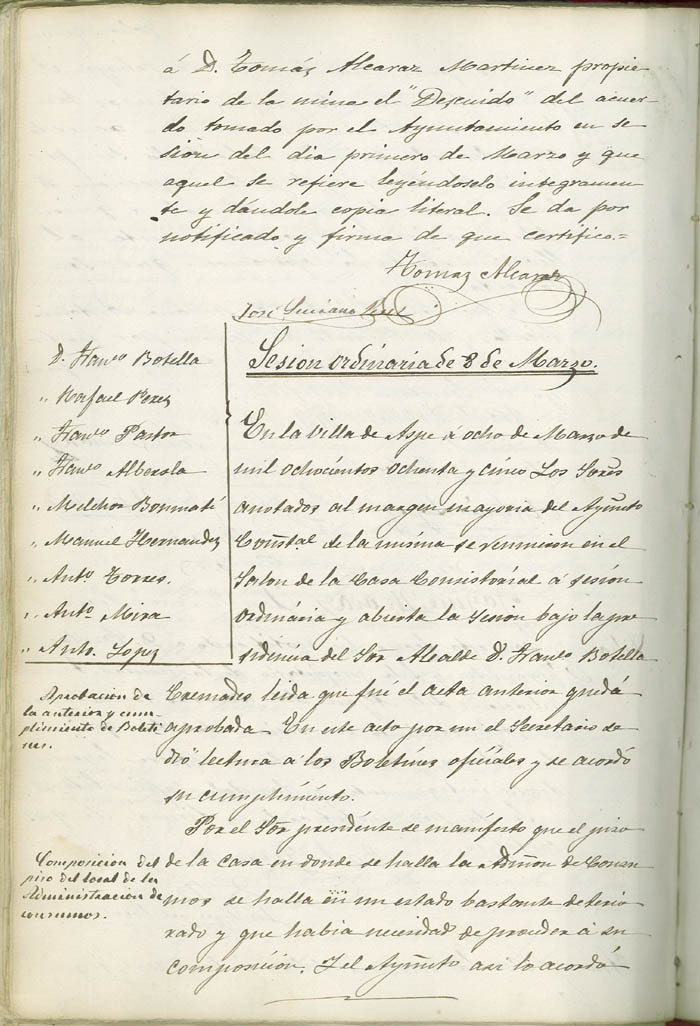 á D. Tomás Alcaraz Martinez propie-
tario de la mina el "Descuido" del acuer-
do tomado por el Ayuntamiento en se
sion del dia primero de Marzo y que
aquel se refiere leyéndoselo integramen-
te y dándole copia literal. Se da por
notificado y firma de que certifico.=
Tomas Alcaraz
José
Sesion ordinaria de 8 de Marzo.
D. Franco Botella
" Rafael Perez
" Franco Pastor
" Franco Alberola
" Melchor Bonmatí
" Manuel Hernandez
" Anto Torres.
" Anto. Mira
" Anto. Lopez
En la Villa de Aspe á ocho de Marzo de
mil ochocientos ochenta y cinco Los Sores
anotados al margen mayoria del Ayunto
Constal. de la misma se reunieron en el
Salon de la Casa Consistorial á sesión
ordinária y abierta la sesion bajo la pre
sidencia del Sor Alcalde D. Franco Botella
Cremades leida que fué el acta anterior quedó
aprobada. En este acto por mi el Secretario se
dió lectura a los Boletines oficiales y se acordó
su cumplimiento.
Aprobacion de
la anterior y cum-
plimiento de Boleti
nes.
Por el Sor presidente se manifesto que el piso
de la casa en donde se halla la Admon de Consu
mos se halla en un estado bastante deterio
rado y que habia necesidad de proceder á su
composición. Y el Ayunto asi lo acordó
Composicion del
piso del local de la
Administracion de
consumos.